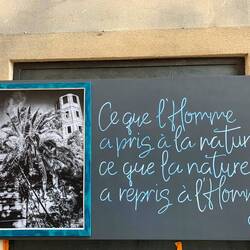 Ce que l'Homme
a pris à la natur
ce que la nature
a repris à l'Hom